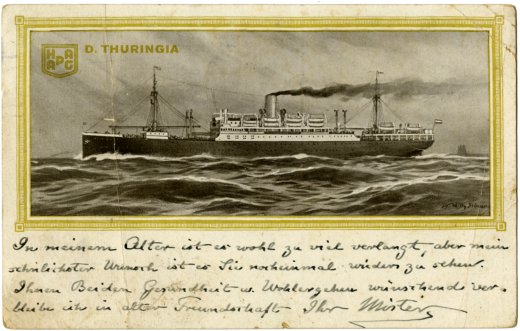 HAPAG
D. THURINGIA
In meinem Alter ist es wohl zu viel verlangt, aber mein
sehnlichster Wunsch ist es Sie nocheinmal wieder zu sehen.
Ihnen Beiden Gesundheit u. Wohlergehen wünschend ver-
bleibe ich in alter Freundschaft Ihr